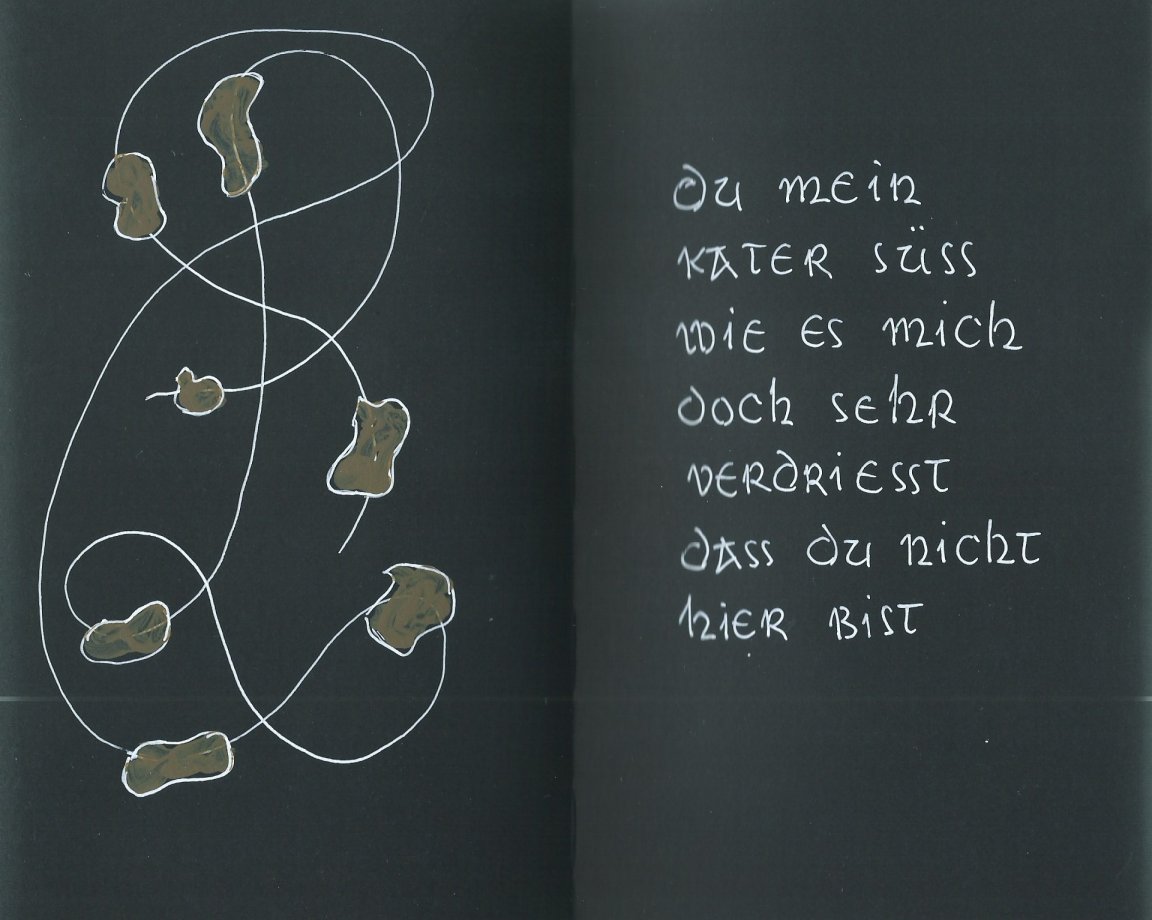 du mein
KATER süss
wie es mich
doch sehr
verdriesst
dass du nicht
hier bist